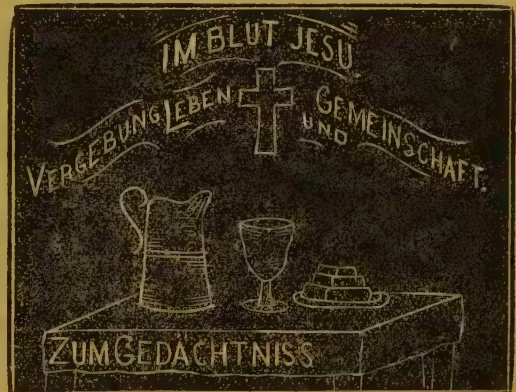 IM BLUT JESU.
VERGEBUNG LEBEN UND GEMEINSCHAFT.
ZUM GEDÄCHTNISS